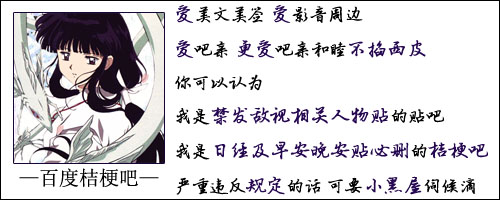 爱美文美签 爱影音周边
爱吧亲 更爱吧亲和睦不掐两皮
你可以认为
我是禁发敌视相关人物贴的贴吧
我是日经及早安晚安贴必删的桔梗吧
严重违反规定的话 可要小黑屋伺候滴
—百度桔梗吧—